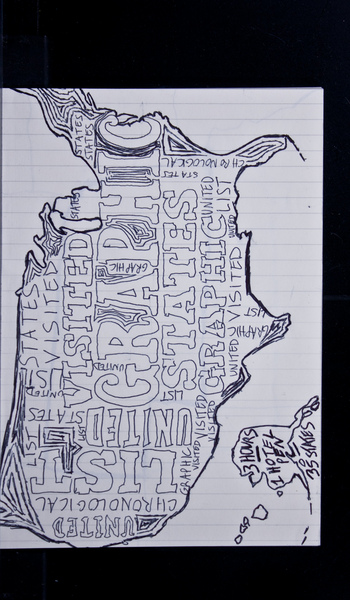 STATES
STATES
STATES
STATES
VISITED
LIST
UNITED
LIST
STATES
VISITED
LIST
GRAPHIC
GRAPHIC
UNITED
UNITED
LIST
CHRONOLOGICAL
UNITED
CHRONOLOGICAL
STATES
STATES
LIST
UNITED
GRAPHIC
VISITED
VISITED
VISITED
GRAPHIC
UNITED
LIST
UNITED
VISITED
UNITED
GRAPHIC
LIST
3 HOURS
35 STATES